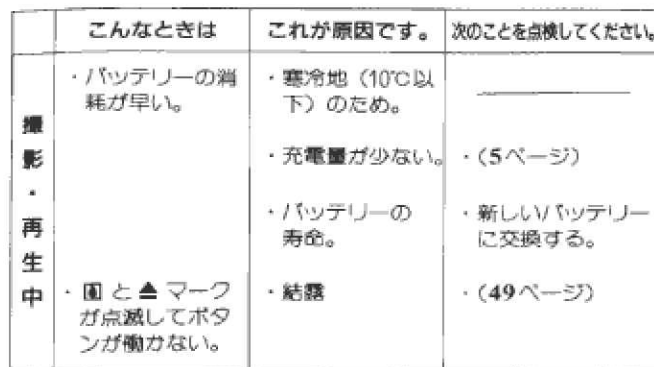 こんなときは
これが原因です。
次のことを点検してください。
撮影・再生中
・バッテリーの消
耗が早い。
・寒冷地（10℃以
下）のため。
・充電量が少ない。
・（5ページ）
・バッテリーの
寿命。
・新しいバッテリー
に交換する。
・ と ⏏ マーク
が点滅してボタ
ンが働かない。
・結露
・（49ページ）